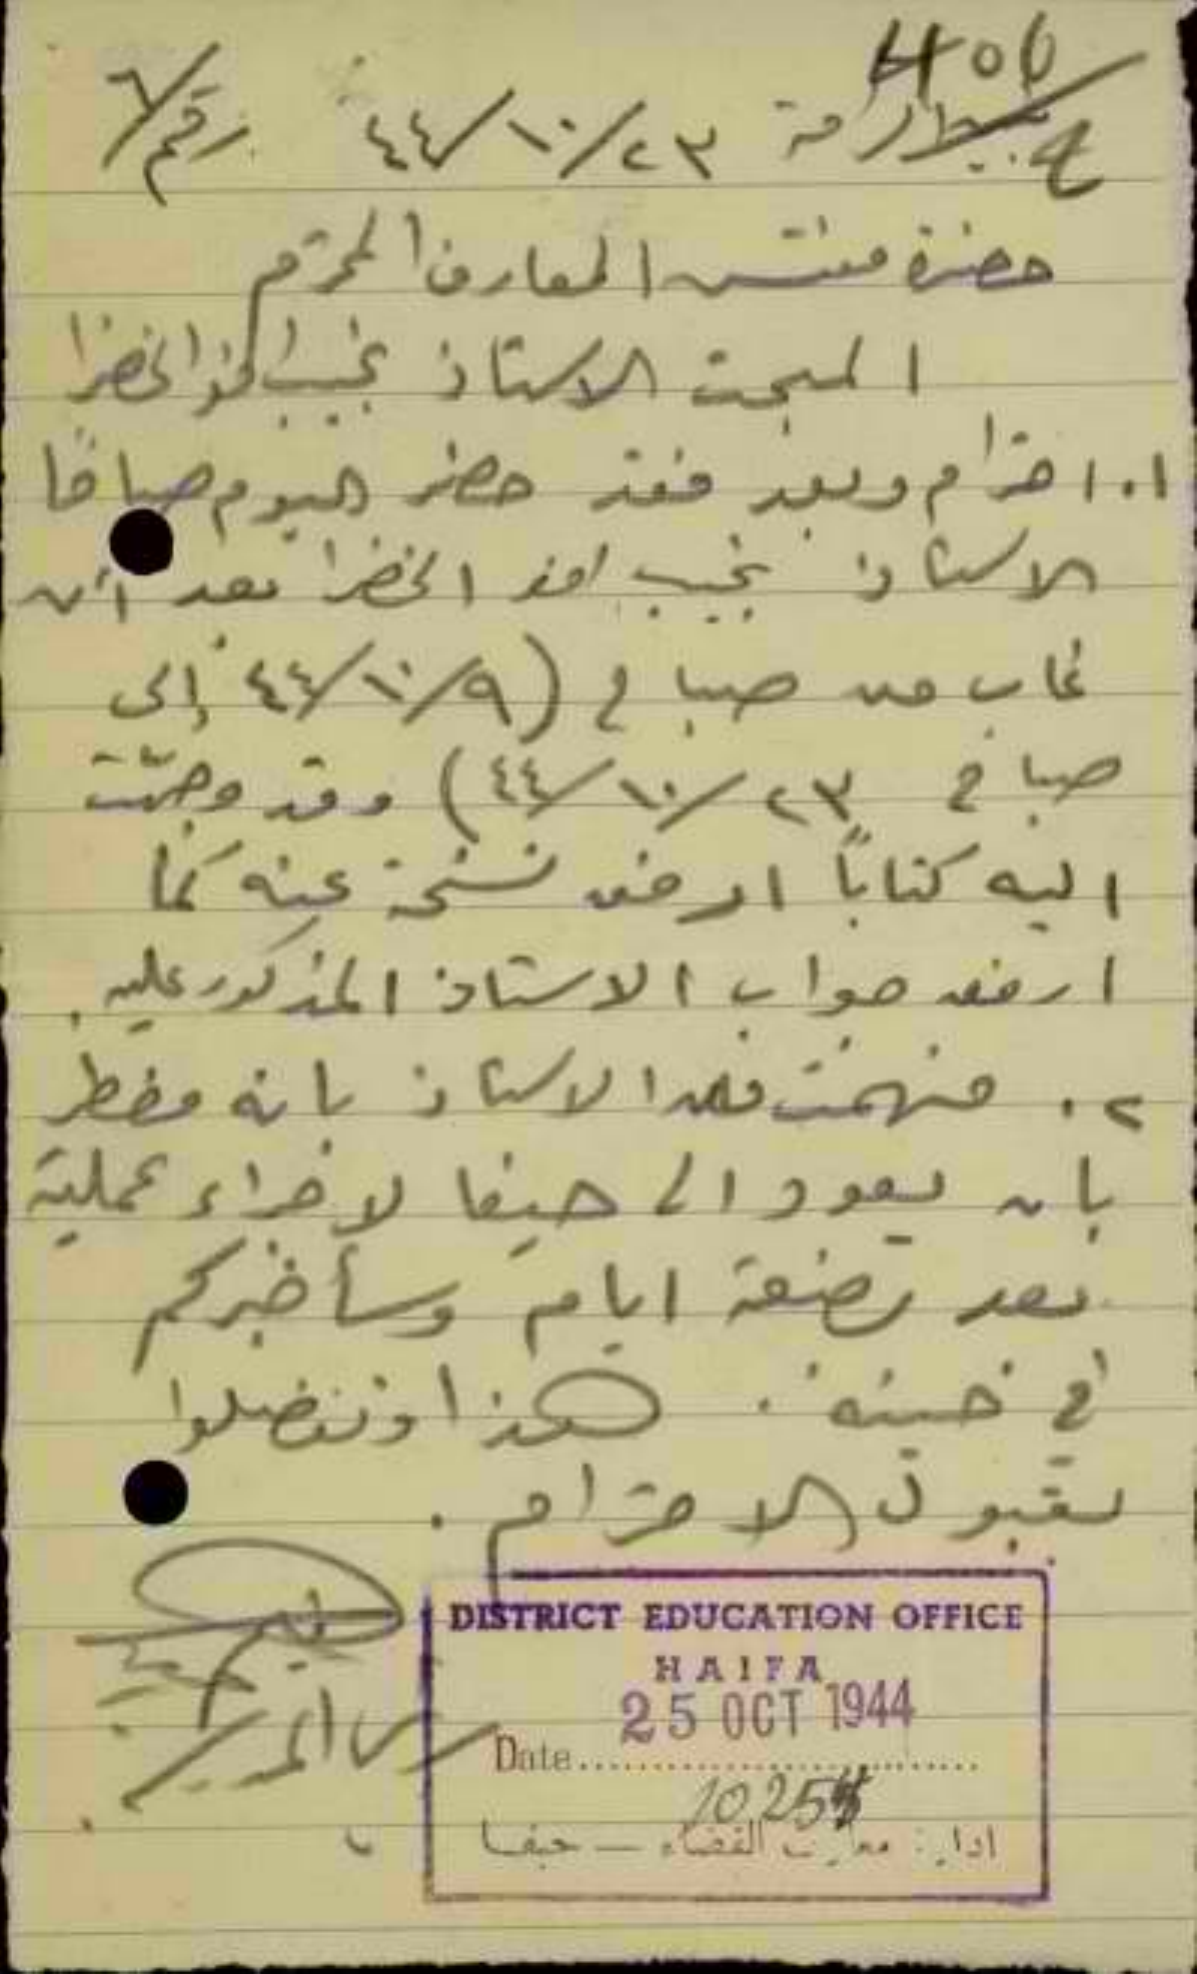 ٤٤/١٠/٢٣ رقم ٦/
حضرة مفتش المعارف المحترم
المبحث الاستاذ نجيب افند الخضرا
١. احترام وبعد فقد حضر اليوم صباحًا
الاستاذ نجيب افند الخضرا بعد أن
غاب من صباح (٤٤/١٠/٩ إلى
صباح ٤٤/١٠/٢٣) وقد وجّهت
اليه كتابًا ارفق نسخة عنه كما
ارفق جواب الاستاذ المذكور عليه.
٢. فهمت من الاستاذ بانه مضطر
بان يعود الى حيفا لاجراء عملية
بعد بضعة ايام وسأخبركم
في حينه. هذا وتفضلوا
بقبول الاحترام.
DISTRICT EDUCATION OFFICE
HAIFA
25 OCT 1944
Date
1025
ادارة معارف القضاء - حيفا